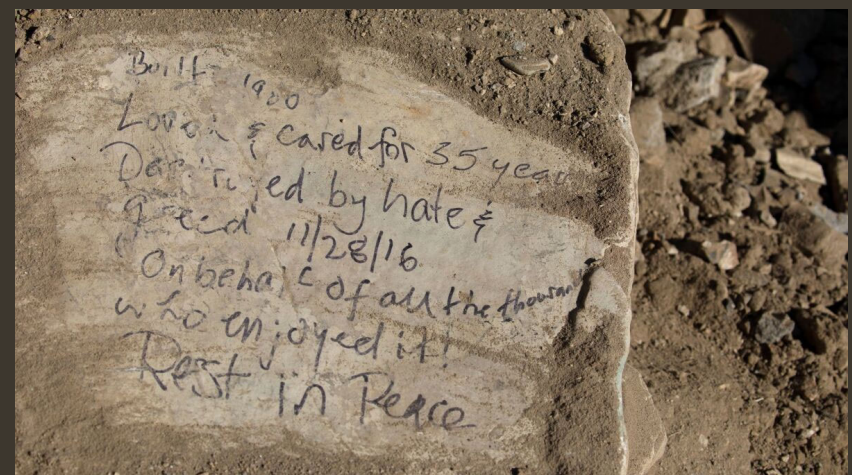 Built 1900
Loved & cared for 35 years
Destroyed by hate &
greed 11/28/16
On behalf of all the thousands
who enjoyed it!
Rest in Peace